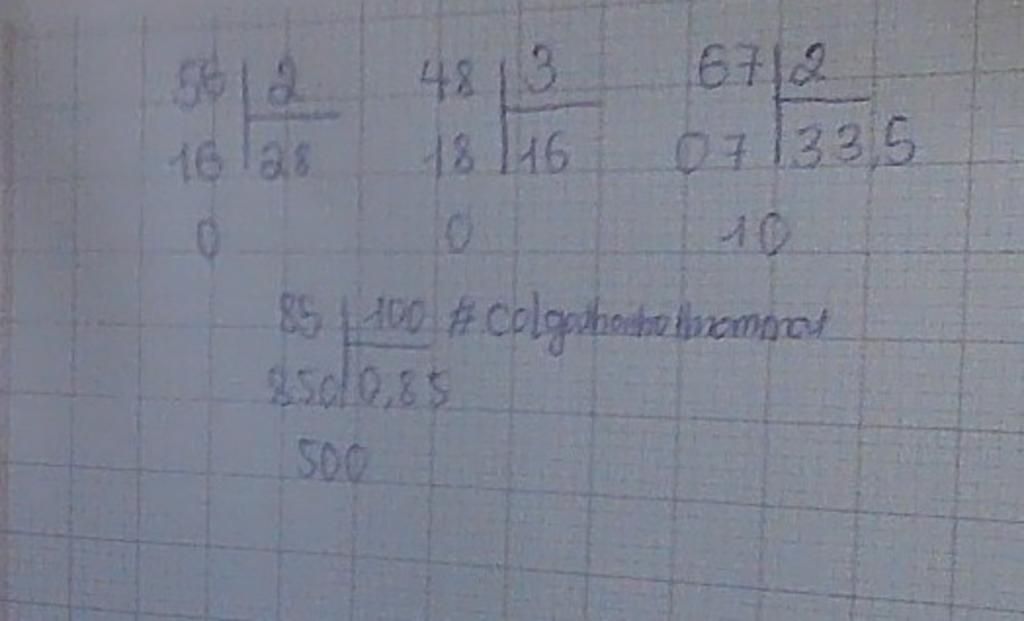 56 2 48 3 67 2
16 28 18 16 07 33,5
0 0 10
85 100 #
850 0,85
500